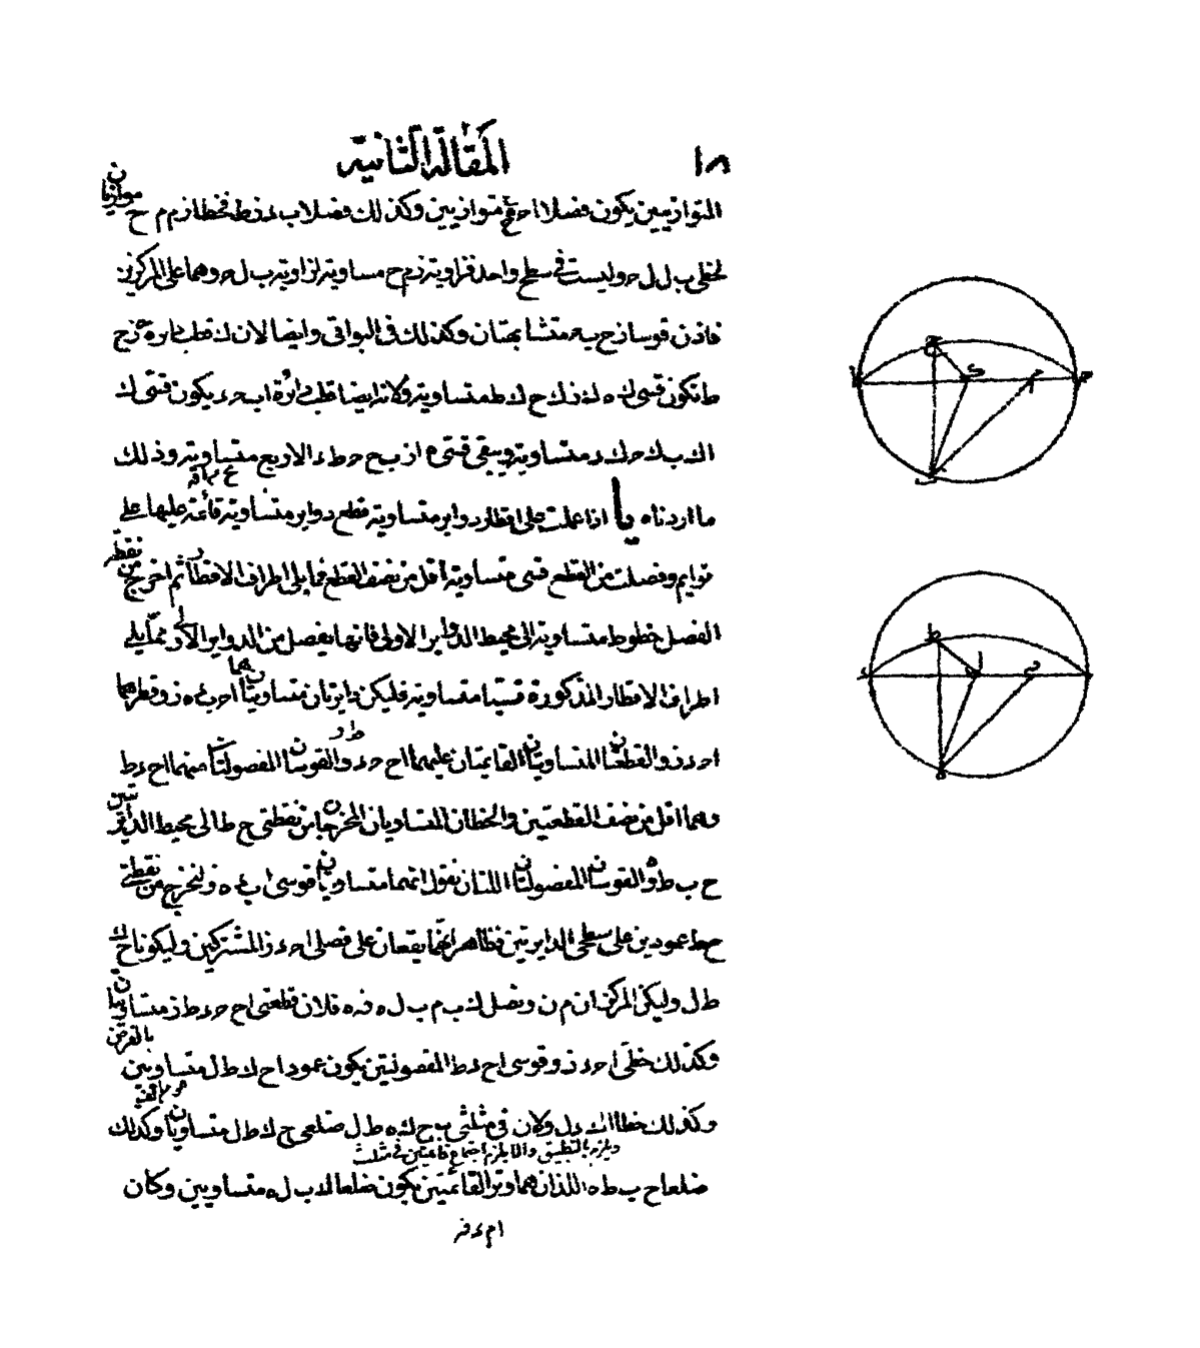 المقالة الثانية
١٨
المتوازيين يكون فضلا ا ح ع ح متوازيين وكذلك فضلا ب ء ز ط فخطا ز م م ح موازيان
لخطى ب ل ل ح وليست فى سطح واحد فزاوية ز م ح مساوية لزاوية ب ل ح وهما على المركزين
فاذن قوسا ز ح ب ح متشابهتان وكذلك فى البواقى وايضا لان ك قطب دائرة ه ز ح
ط تكون قسى ك ه ك ز ك ح ك ط متساوية ولانه ايضا قطب دائرة ا ب ح ء يكون قسى ك
ا ك ب ك ح ك ء متساوية ويبقى قسى ه ا ز ب ح ح ط ء الاربع متساوية وذلك
ما اردناه يا اذا عملت على اقطار دواير متساوية قطع دواير متساوية قائمة عليها على
قوايم وفصلت من القطع قسى متساوية اقل من نصف القطع مما يلى اطراف الاقطار ثم اخرج من نقطة
الفصل خطوط متساوية الى محيط الدواير الاولى فانها يفصل من الدواير الاول مما يلى
اطراف الاقطار المذكورة قسيا متساوية فليكن دايرتان متساويتان هما ا ب ح ء ه ز وقطراهما
ا ح ء ز والقطعتان المتساويتان القايمتان عليهما ا ح ح ء ط ز والقوسان المفصولتان منهما ا ح ء ط
وهما اقل من نصف القطعتين والخطان المتساويان المخرجان من نقطتى ح ط الى محيط الدايرتين
ح ب ط ه والقوسان المفصولتان اللتان نقول انهما متساويتان قوسى ا ب ء ه ولنخرج من نقطتى
ح ط عمودين على سطحى الدايرتين فظاهر انهما يقعان على فصلى ا ح ء ز المشتركين وليكونا ح ك
ط ل وليكن المركزان م ن ونصل ك ب م ب ل ه ن ه فلان قطعتى ا ح ح ء ط ز متساويتان
وكذلك خطى ا ح ء ز وقوسى ا ح ء ط المفصولتين يكون عمودا ح ك ط ل متساويين بالفرض
وكذلك خطا ا ك ء ل ولان فى مثلثى ب ح ك ه ط ل ضلعى ح ك ط ل متساويان وكذلك
ويلزم بالتطبيق والا يلزم اجتماع قائمتين فى مثلث
ضلعا ح ب ط ه اللذان هما وترا القائمتين يكون ضلعا ك ب ل ه متساويين وكان
ا م ء ن